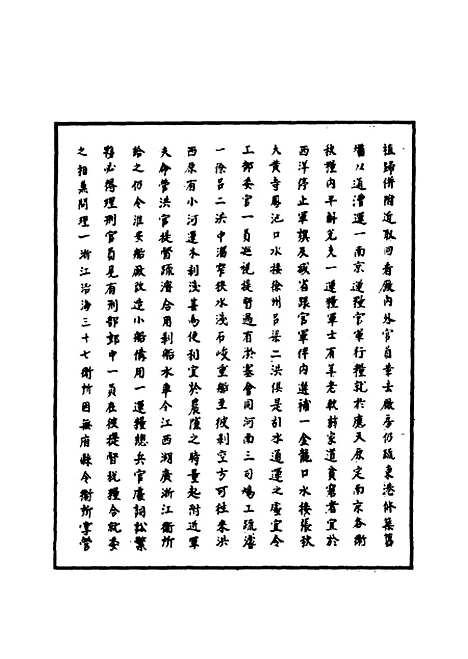 祖歸併附近取回看廠內外官員裁去廠房仍砥東港休築舊
壩以通漕運一南京運糧官軍行糧就於應天原定南京各衛
秋糧內平斛兌支一運糧軍士有羊老軟尉家道貧窮者宜於
西洋停止軍旗及戒省跟官軍伴內選補一金龍口水接張秋
大黃寺鳳池口水接徐州呂梁二洪俱是引水通運之處宜令
工部委官一員巡視提督過有淤塞會同河南三司埸工疏濬
一徐呂二洪中灣窄狹水淺石峻重船至彼剝空方可往來洪
西原有小河運木利淺甚為便利宜於農隙之時量起附近軍
夫命管洪官提督疏濬合用剝船水車令江西湖廣浙江衛所
給之仍令淮安船廠改造小船備用一運糧總兵官處詞訟繁
難必得理刑官員見有刑部郎中一員在彼提督犹糧合就委
之相兼問理一浙江沿海三十七衛所因無府縣令衛所掌管